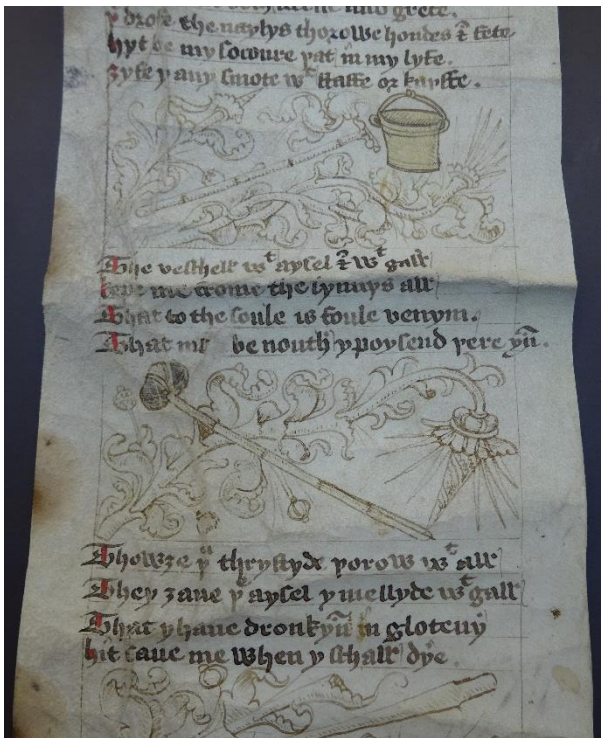 y drofe the naylys thorowe hondes & fete
hyt be my socoure þat in my lyfe.
ȝyfe y any smote wᵗ staffe or knyffe.
The vesshell wᵗ aysel & wᵗ gall
kepe me frome the synnys all
That to the soule is foule venym.
That me be nouth ypoysend þere yn̄.
Thowȝe þᵘ thrystyde þorow wᵗ all
They ȝaue þᵉ aysel ymellyde wᵗ gall
That y haue dronkyn̄ in gloteny
hit saue me when y schall dye.